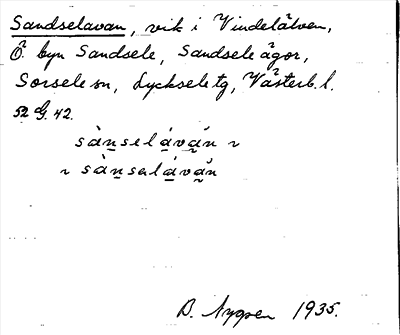 Sandselavan, vik i Vindelälven,
Ö. byn Sandsele, Sandsele ägor,
Sorsele sn, Lycksele tg, Västerb. l.
52 G. 42.
sànselávǎn ~
~ sànsəlávǎn
D. 1935.